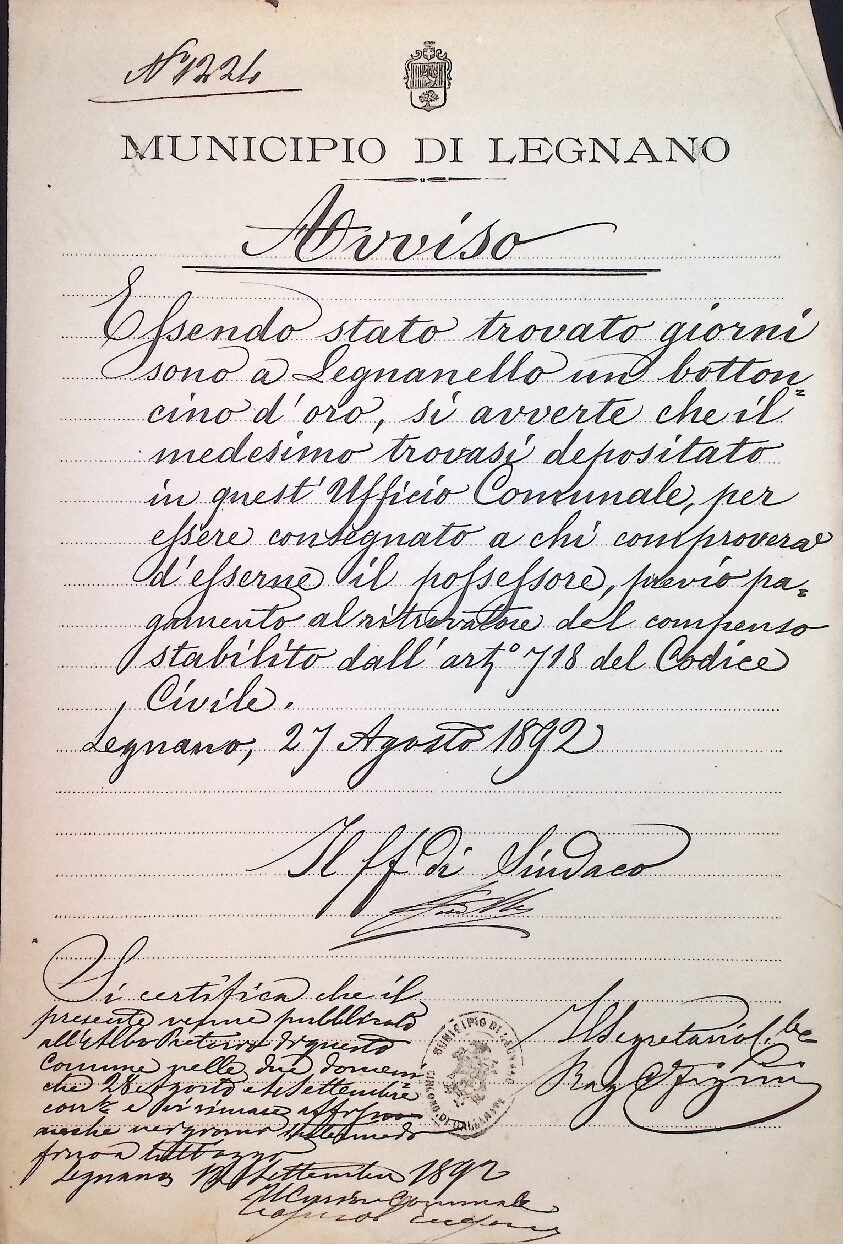 N° 1224
MUNICIPIO DI LEGNANO
Avviso
Essendo stato trovato giorni
sono a Legnanello un botton=
cino d'oro, si avverte che il
medesimo trovasi depositato
in quest'Ufficio Comunale, per
essere consegnato a chi comproverà
d'esserne il possessore, previo pa=
gamento al ritrovatore del compenso
stabilito dall'art° 718 del Codice
Civile.
Legnano, 27 Agosto 1892
Il ff di Sindaco
Si certifica che il
presente venne pubblicato
all'Albo Pretorio di questo
Comune nelle due domeni
che 28 Agosto e 4 Settembre
e vi rimase affisso
anche nei giorni
fino a tutt'oggi
Legnano Settembre 1892
Il Cursore Comunale
MUNICIPIO DI LEGNANO
CIRCON. DI GALLARATE
Il Segretario
Rag